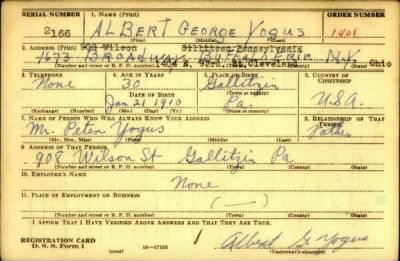 SERIAL NUMBER 1. NAME (Print) ORDER NUMBER
2166 ALBERT GEORGE YOGUS 1401
(First) (Middle) (Last)
2. ADDRESS (Print) 908 Wilson Gillitzen Pennsylvania
1673 BROADWAY BUFFALO ERIE N.Y.
1404 E. Cleveland, Ohio
(Number and street or R. F. D. number) (Town) (County) (State)
3. TELEPHONE 4. AGE IN YEARS 5. PLACE OF BIRTH 6. COUNTRY OF CITIZENSHIP
None 30 Gallitzin
DATE OF BIRTH (Town or county)
Jan 21 1910 Pa. U.S.A.
(Exchange) (Number) (Mo.) (Day) (Yr.) (State or country)
7. NAME OF PERSON WHO WILL ALWAYS KNOW YOUR ADDRESS 8. RELATIONSHIP OF THAT PERSON
Mr. Peter Yogus Father
(Mr., Mrs., Miss) (First) (Middle) (Last)
9. ADDRESS OF THAT PERSON
908 Wilson St Gallitzin Pa
(Number and street or R. F. D. number) (Town) (County) (State)
10. EMPLOYER'S NAME
None
11. PLACE OF EMPLOYMENT OR BUSINESS
(—)
(Number and street or R. F. D. number) (Town) (County) (State)
I AFFIRM THAT I HAVE VERIFIED ABOVE ANSWERS AND THAT THEY ARE TRUE.
REGISTRATION CARD
D. S. S. FORM 1 (over) 16—17105 Albert G. Yogus
(Registrant's signature)